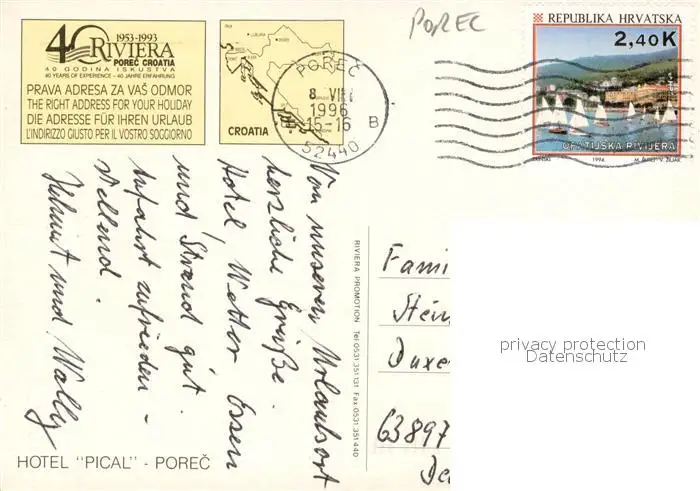 POREC
40 1953-1993
RIVIERA
POREČ CROATIA
40 GODINA ISKUSTVA
40 YEARS OF EXPERIENCE - 40 JAHRE ERFAHRUNG
PRAVA ADRESA ZA VAŠ ODMOR
THE RIGHT ADDRESS FOR YOUR HOLIDAY
DIE ADRESSE FÜR IHREN URLAUB
L'INDIRIZZO GIUSTO PER IL VOSTRO SOGGIORNO
CROATIA
POREČ
8 VIII
1996
15-16 B
52440
REPUBLIKA HRVATSKA
2,40 K
OPATIJSKA RIVIJERA
1994
Vom unseren Urlaubsort
herzliche Grüße.
Hotel, Wetter Essen
und Strand gut.
Anfahrt zufrieden-
stellend.
Helmut und Wally
RIVIERA PROMOTION Tel 0531/351 131 Fax 0531/351 440
Fami
Stein
Duxe
63897
De
privacy protection
Datenschutz
HOTEL "PICAL" - POREČ